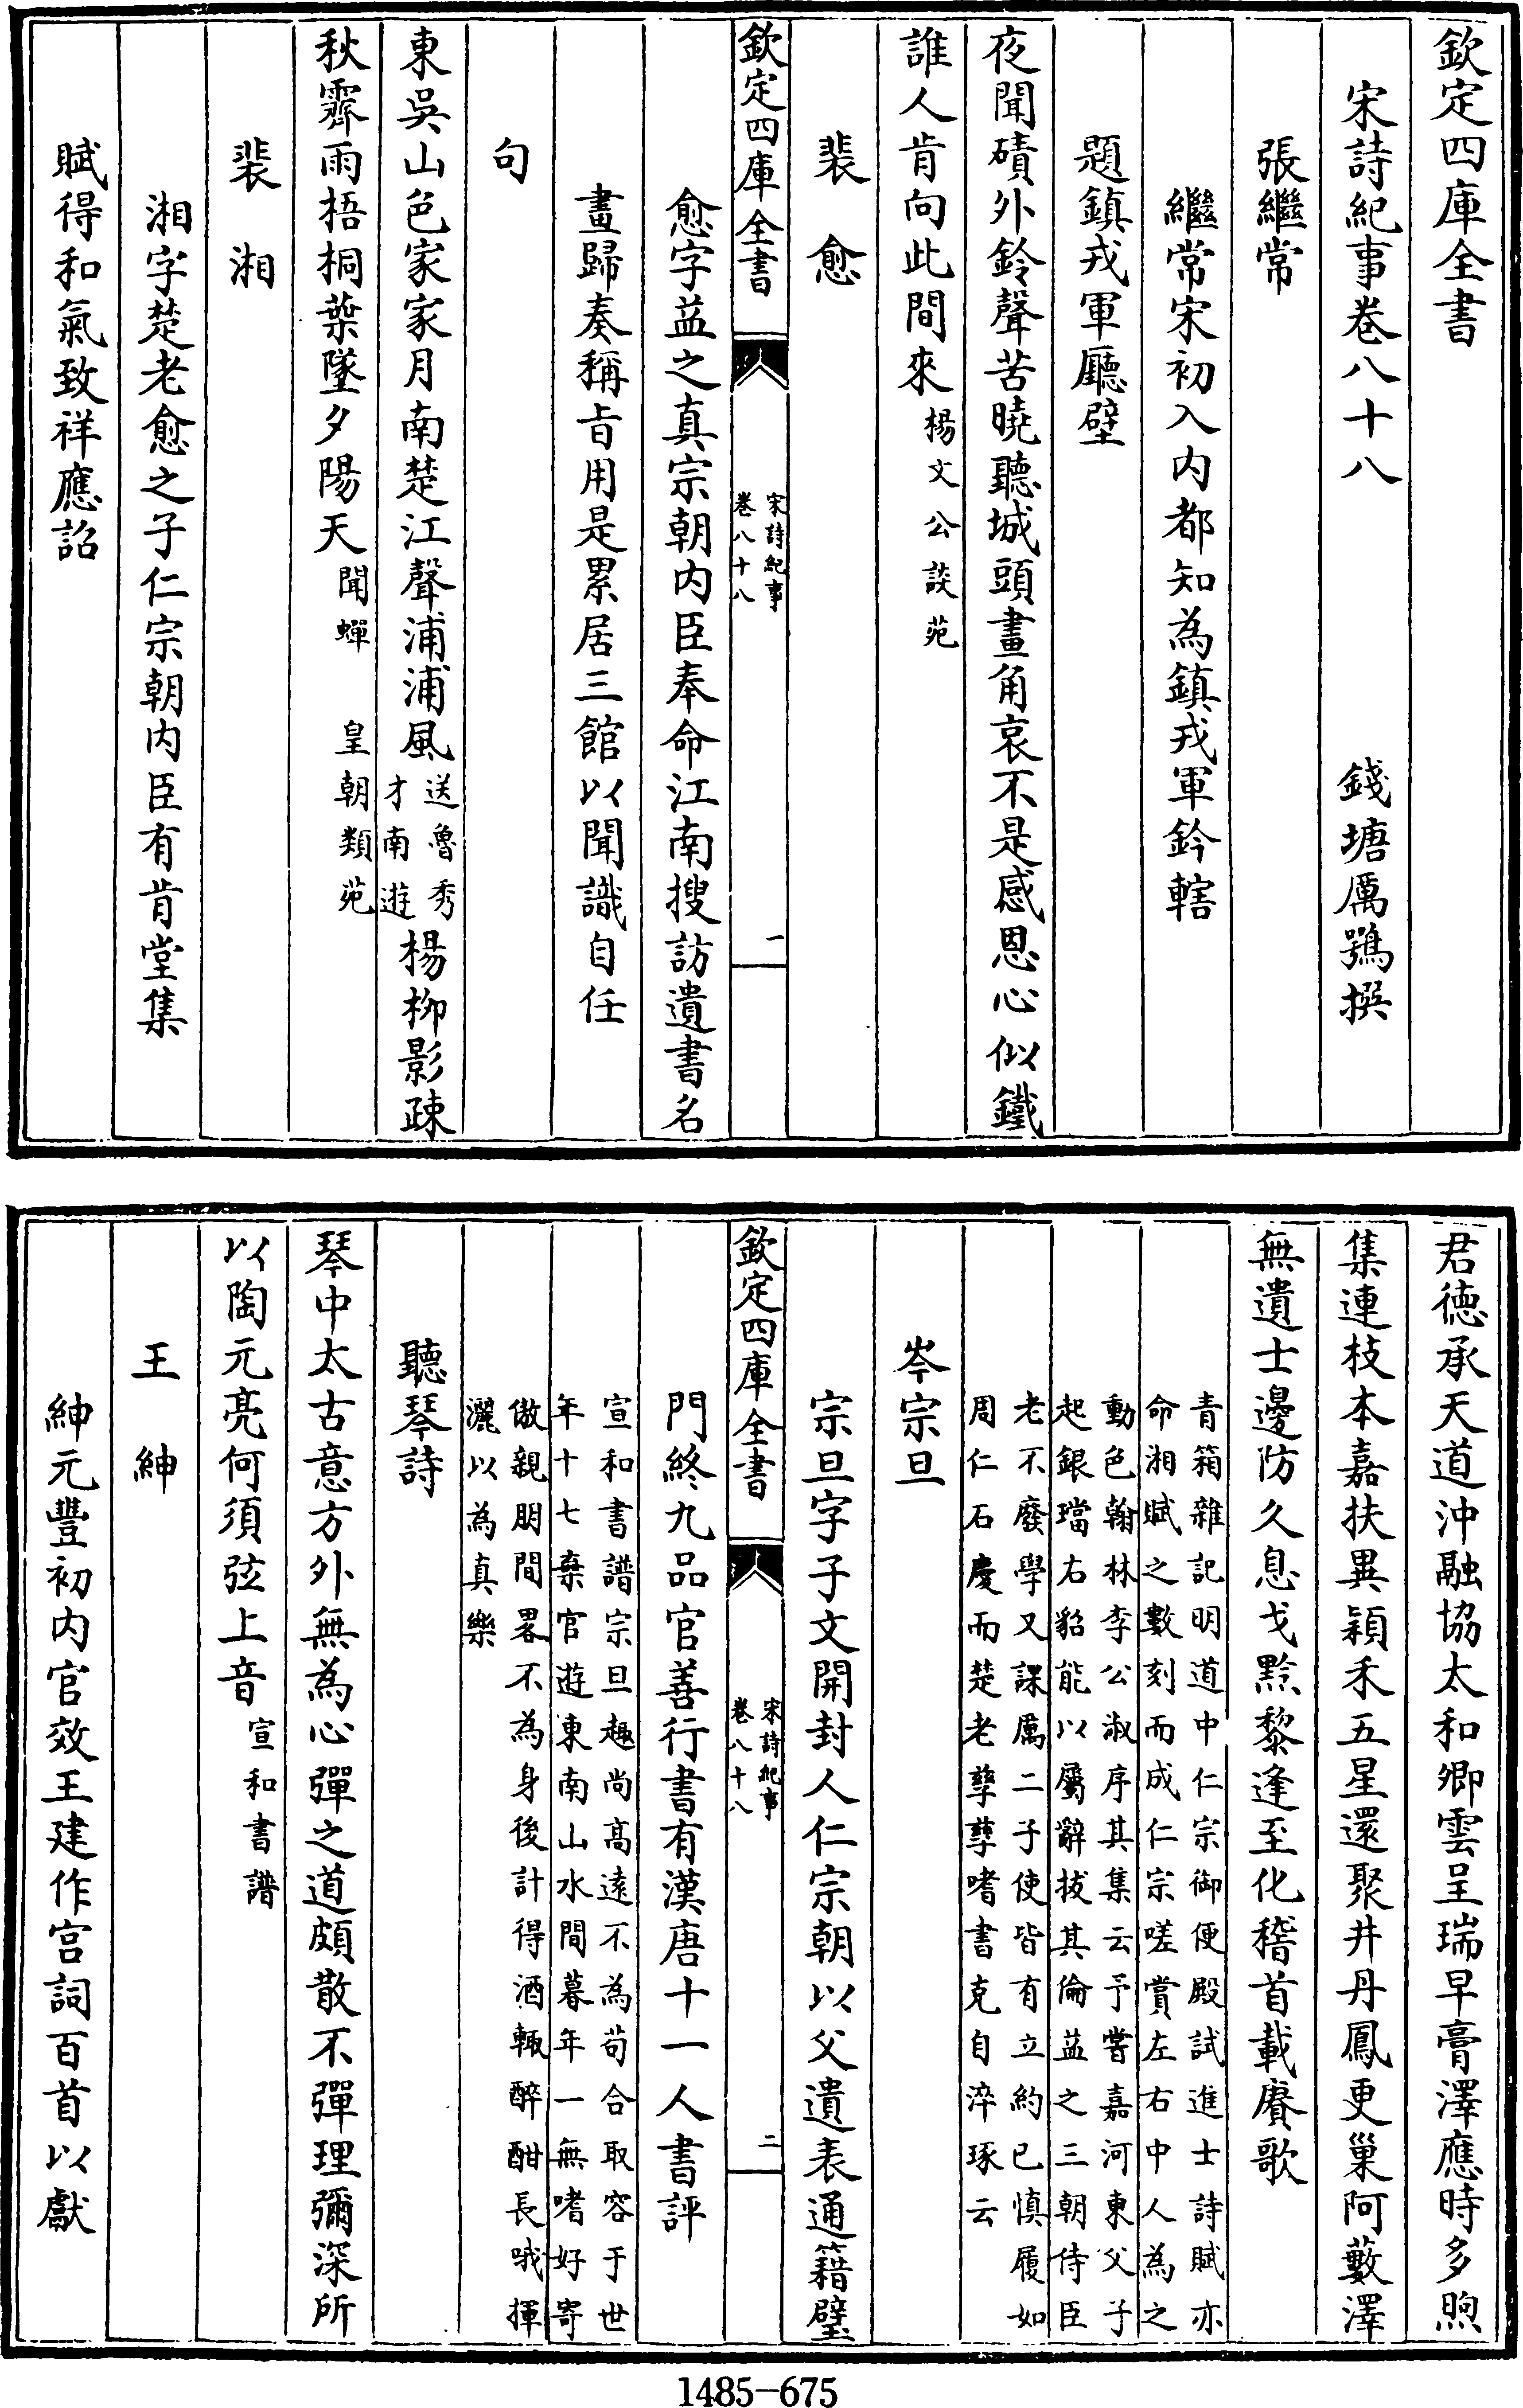 欽定四庫全書
宋詩紀事卷八十八
錢塘厲鶚撰
張繼常
繼常宋初入内都知為鎮戎軍鈐轄
題鎮戎軍廳壁
夜聞磧外鈴聲苦曉聽城頭畫角哀不是感恩心似鐵
誰人肯向此間來楊文公談苑
裴愈
欽定四庫全書
宋詩紀事
卷八十八
一
愈字益之真宗朝内臣奉命江南搜訪遺書名
畫歸奏稱旨用是累居三館以聞識自任
句
東吳山色家家月南楚江聲浦浦風送魯秀才南遊楊柳影疎
秋霽雨梧桐葉墜夕陽天聞蟬 皇朝類苑
裴湘
湘字楚老愈之子仁宗朝内臣有肯堂集
賦得和氣致祥應詔
君德承天道沖融協太和卿雲呈瑞早膏澤應時多煦
集連枝本嘉扶異穎禾五星還聚井丹鳳更巢阿藪澤
無遺士邊防久息戈黔黎逢至化稽首載賡歌
青箱雜記明道中仁宗御便殿試進士詩賦亦
命湘賦之數刻而成仁宗嗟賞左右中人為之
動色翰林李公淑序其集云予嘗嘉河東父子
起銀璫右貂能以屬辭拔其倫益之三朝侍臣
老不廢學又課厲二子使皆有立約已慎履如
周仁石慶而楚老孳孳嗜書克自淬琢云
岑宗旦
宗旦字子文開封人仁宗朝以父遺表通籍璧
欽定四庫全書
宋詩紀事
卷八十八
二
門終九品官善行書有漢唐十一人書評
宣和書譜宗旦趣尚高遠不為苟合取容于世
年十七棄官遊東南山水間暮年一無嗜好寄
傲親朋間畧不為身後計得酒輒醉酣長哦揮
灑以為真樂
聽琴詩
琴中太古意方外無為心彈之道頗散不彈理彌深所
以陶元亮何須弦上音宣和書譜
王紳
紳元豐初内官效王建作宫詞百首以獻
1485-675